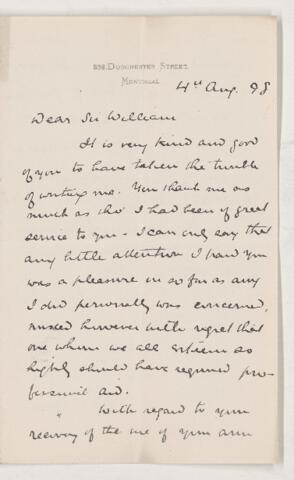 938, Dorchester Street.
Montreal
4th Aug. 98
Dear Sir William
It is very kind and good
of you to have taken the trouble
of writing me. You thank me as
much as tho' I had been of great
service to you - I can only say that
any little attention I paid you
was a pleasure in so far as any
I did personally was concerned,
mixed however with regret that
one whom we all esteem so
highly should have required pro-
fessional aid.
With regard to your
recovery of the use of your arm